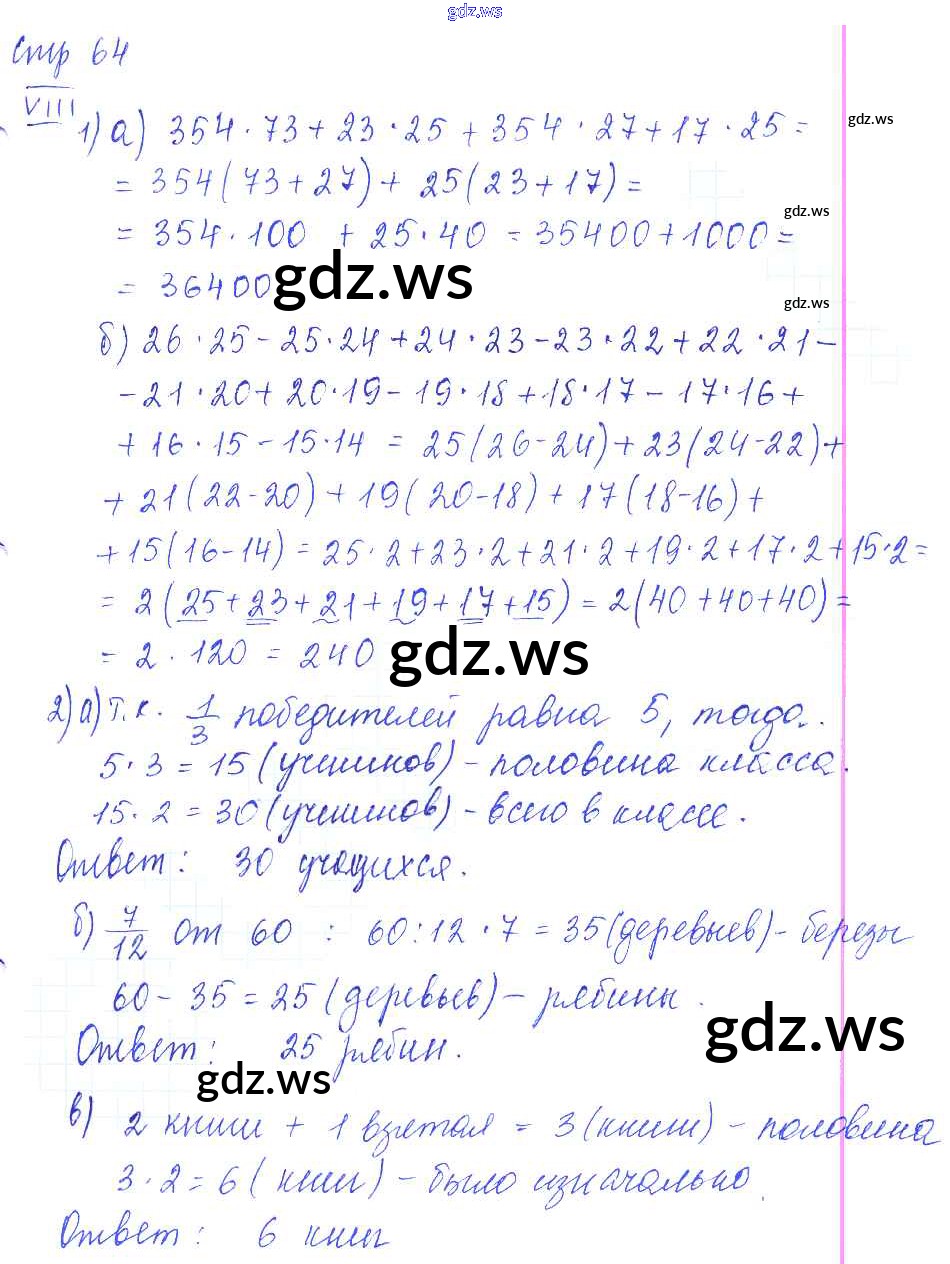 gdz.ws
Стр 64
VIII
1) а) 354 · 73 + 23 · 25 + 354 · 27 + 17 · 25 =
gdz.ws
= 354(73+27) + 25(23+17) =
gdz.ws
= 354 · 100 + 25 · 40 = 35400 + 1000 =
= 36400
gdz.ws
gdz.ws
б) 26 · 25 - 25 · 24 + 24 · 23 - 23 · 22 + 22 · 21 -
- 21 · 20 + 20 · 19 - 19 · 18 + 18 · 17 - 17 · 16 +
+ 16 · 15 - 15 · 14 = 25(26-24) + 23(24-22) +
+ 21(22-20) + 19(20-18) + 17(18-16) +
+ 15(16-14) = 25 · 2 + 23 · 2 + 21 · 2 + 19 · 2 + 17 · 2 + 15 · 2 =
= 2(25 + 23 + 21 + 19 + 17 + 15) = 2(40 + 40 + 40) =
= 2 · 120 = 240
gdz.ws
2) а) Т.к. 1/3 победителей равна 5, тогда.
5 · 3 = 15 (учеников) - половина класса.
15 · 2 = 30 (учеников) - всего в классе.
Ответ: 30 учащихся.
б) 7/12 от 60 : 60 : 12 · 7 = 35 (деревьев) - березы
60 - 35 = 25 (деревьев) - рябины.
gdz.ws
Ответ: 25 рябин.
gdz.ws
в) 2 книги + 1 взятая = 3 (книги) - половина
3 · 2 = 6 (книг) - было изначально.
Ответ: 6 книг